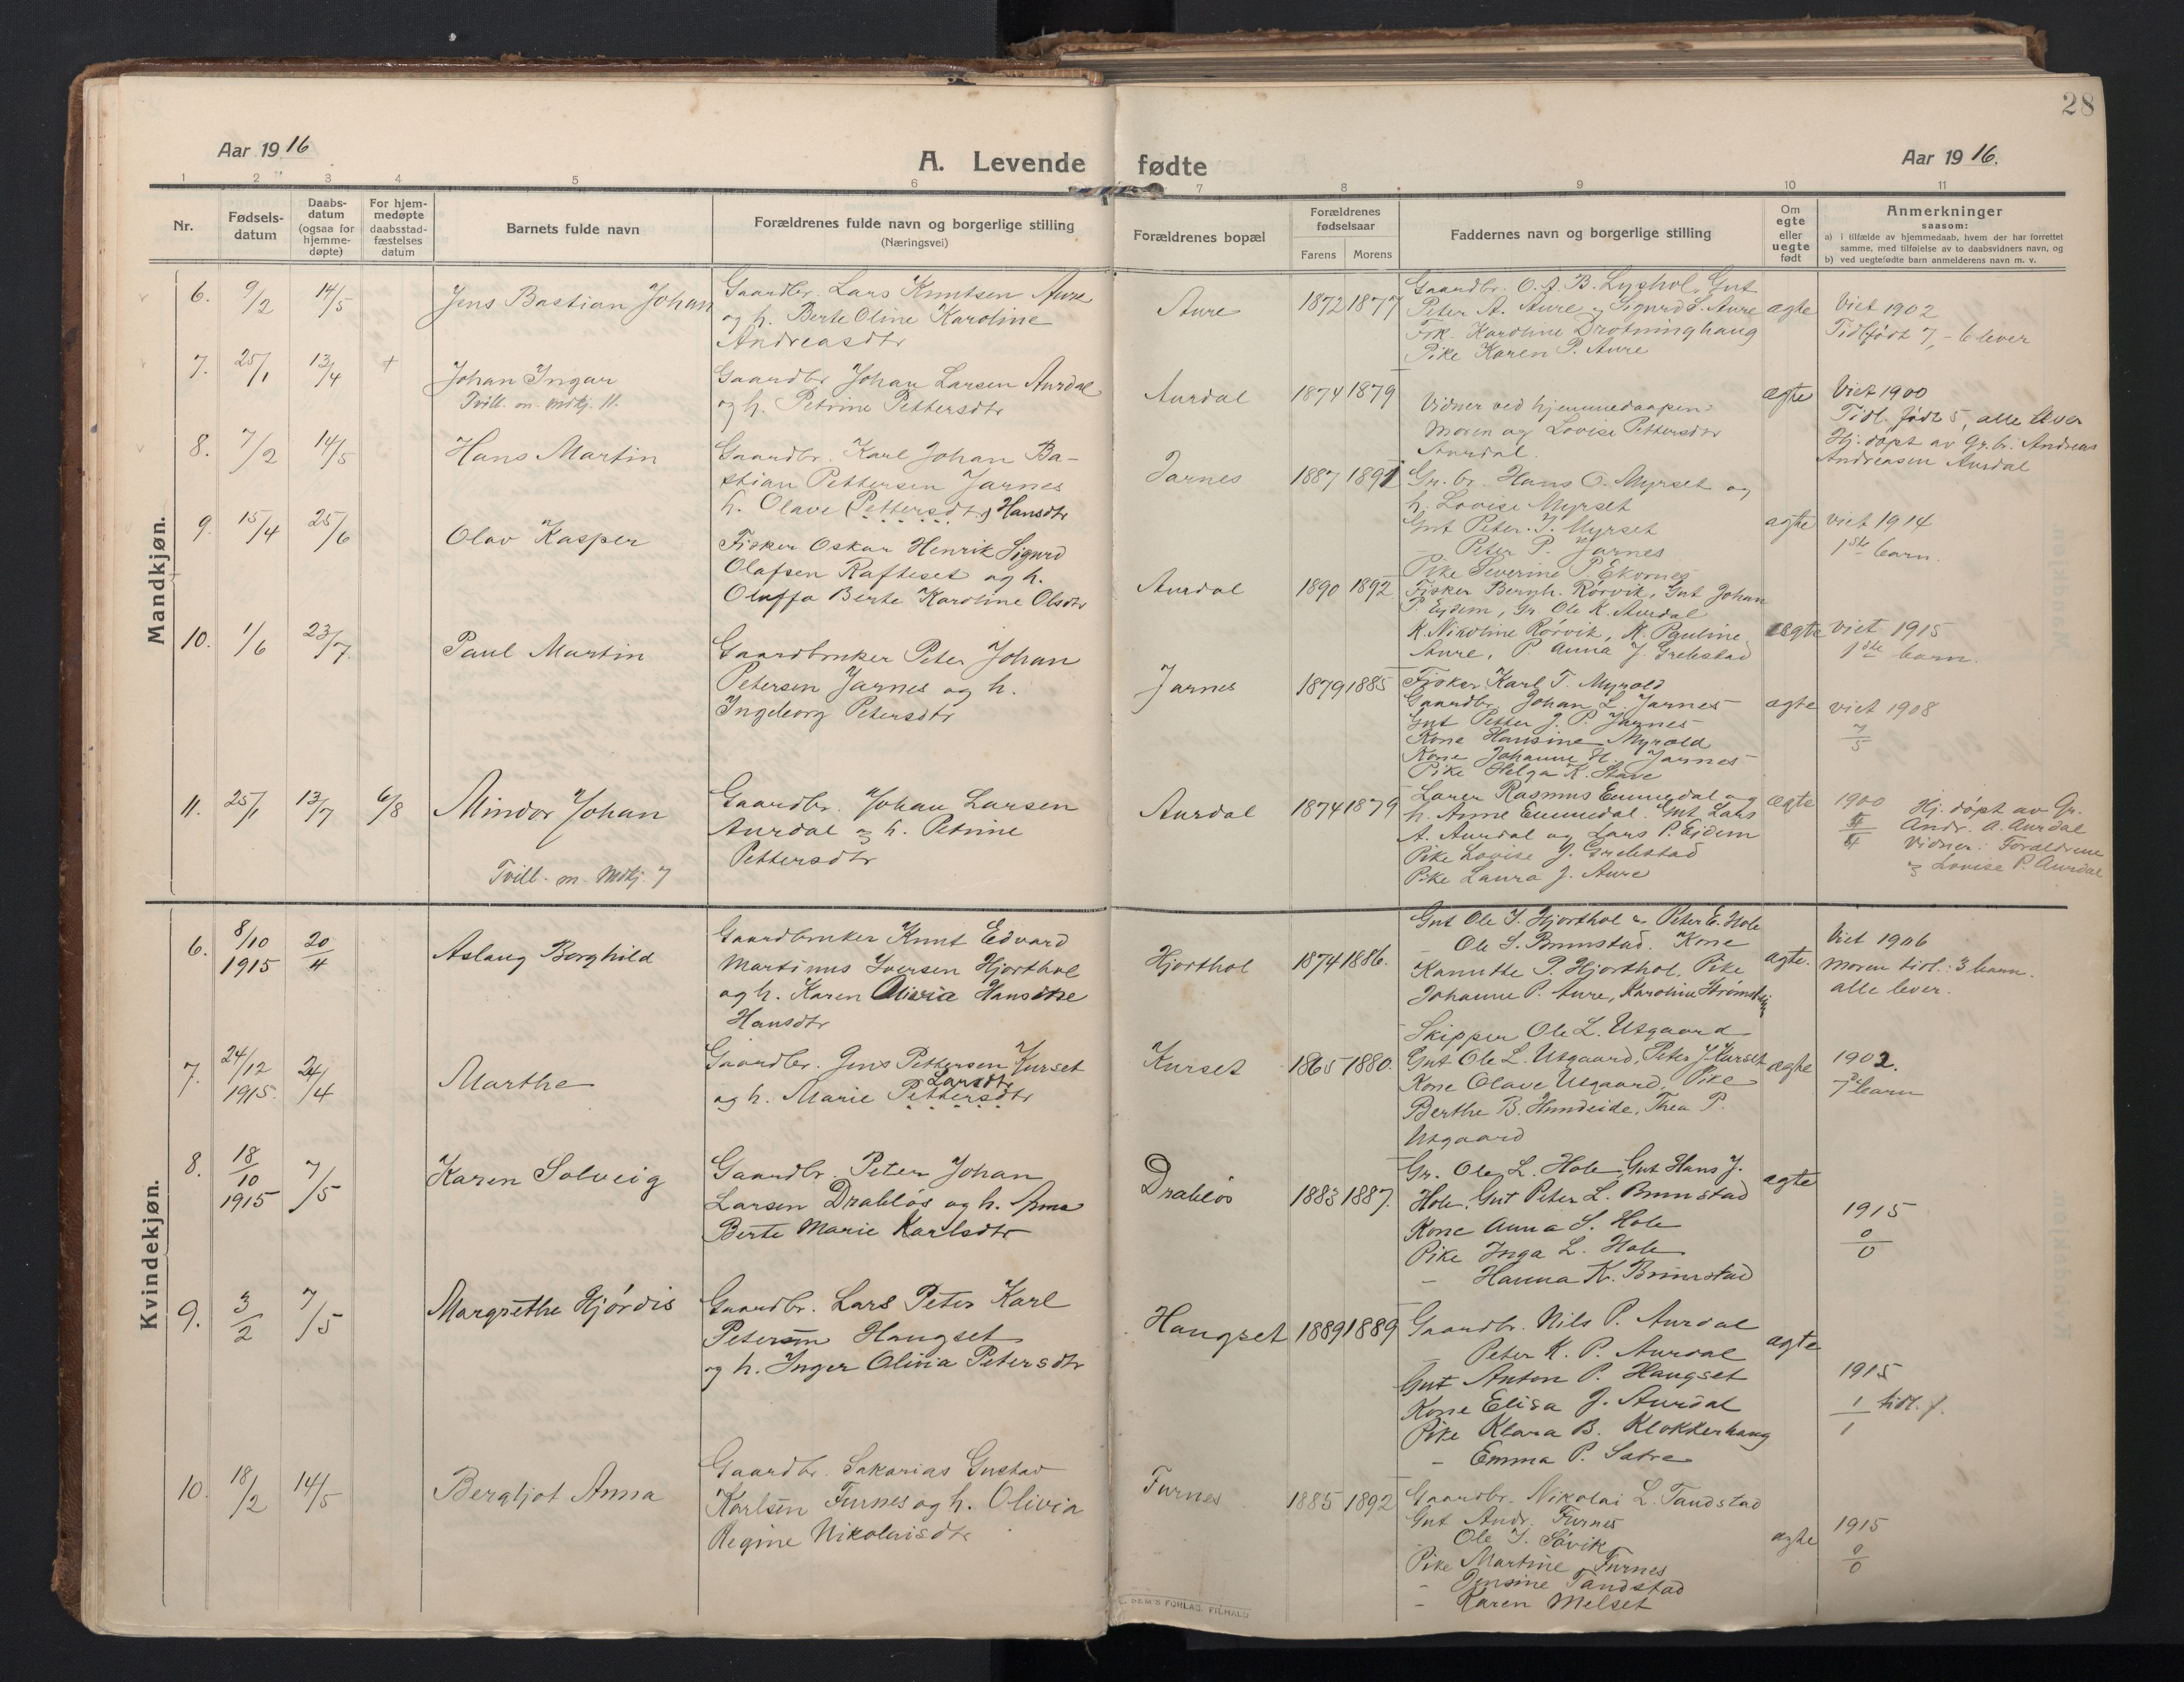 28
Aar 1916
A. Levende fødte
Aar 1916.
1 2 3 4 5 6 7 8 9 10 11
Nr.
Fødsels-
datum
Daabs-
datum
(ogsaa for
hjemme-
døpte)
For hjem-
medøpte
daabsstad-
fæstelses
datum
Barnets fulde navn
Forældrenes fulde navn og borgerlige stilling
(Næringsvei)
Forældrenes bopæl
Forældrenes
fødselsaar
Farens Morens
Faddernes navn og borgerlige stilling
Om
egte
eller
uegte
født
Anmerkninger
saasom:
a) i tilfælde av hjemmedaab, hvem der har forrettet
samme, med tilføielse av to daabsvidners navn, og
b) ved uegtefødte barn anmelderens navn m. v.
Mandkjøn.
6. 9/2 14/5 Jens Bastian Johan
Gaardbr. Lars Knutsen Aure
og h. Berte Oline Karoline
Andreasdtr
Aure 1872 1877
Gaardbr. O. A. B. Lyshol, Gut
Peter A. Aure og Sigurd S. Aure
Frk. Karoline Drotninghaug
Pike Karen P. Aure
ægte
Viet 1902
Tidl. født 7, - 6 lever
7. 25/1 13/4 +
Johan Ingar
Tvill. m. Mdkj. 11.
Gaardbr Johan Larsen Aurdal
og h. Petrine Pettersdtr
Aurdal 1874 1879
Vidner ved hjemmedaapen:
Moren og Lovise Pettersdtr
Aurdal.
ægte
Viet 1900
Tidl. født 5, alle lever
Hj. døpt av Gr. br. Andreas
Andreasen Aurdal
8. 7/2 14/5 Hans Martin
Gaardbr. Karl Johan Ba-
stian Pettersen Jarnes
h. Olave (Pettersdtr) Hansdtr
Jarnes 1887 1891
Gr. br. Hans O. Myrset og
h. Lovise Myrset
Gut Peter J. Myrset
- Peter P. Jarnes
Pike Severine P. Ekornes
ægte
viet 1914
1ste barn.
9. 15/4 25/6 Olav Kasper
Fisker Oskar Henrik Sigurd
Olafsen Rafteset og h.
Oluffa Berte Karoline Olsdtr
Aurdal 1890 1892
Fisker Bernh. Rørvik, Gut Johan
P. Eidem, Gr. Ole K. Aurdal
K. Nikoline Rørvik, K. Pauline
Aure, P. Anna J. Grebstad
ægte
viet 1915
1ste barn.
10. 1/6 23/7. Paul Martin
Gaardbruker Peter Johan
Petersen Jarnes og h.
Ingeborg Petersdtr
Jarnes 1879 1885
Fisker Karl T. Myrold
Gaardbr. Johan L. Jarnes
Gut Petter J. P. Jarnes
Kone Hansine Myrold
Kone Johanne H. Jarnes
Pike Helga K. Stave
ægte
viet 1908
7/5
11. 25/1 13/7 6/8 Mindor Johan
Tvill. m. Mdkj. 7
Gaardbr. Johan Larsen
Aurdal og h. Petrine
Pettersdtr
Aurdal 1874 1879
Lærer Rasmus Emmedal og
h. Anne Emmedal. Gut Lars
A. Aurdal og Lars P. Eidem
Pike Lovise J. Grebstad
Pike Laura J. Aure
ægte
1900
Hj. døpt av Gr.
Andr. A. Aurdal
Vidner: Forældrene
og Lovise P. Aurdal
Kvindekjøn.
6. 8/10 1915 20/4 Aslaug Borghild
Gaardbruker Knut Edvard
Martinus Iversen Hjorthol
og h. Karen Olivia Hansdtr
Hansdtr
Hjorthol 1874 1886.
Gut Ole I. Hjorthol og Peter E. Hole
- Ole S. Brunstad. Kone
Kanutte P. Hjorthol. Pike
Johanne P. Aure, Karoline
ægte.
Viet 1906
Moren tidl.: 3 barn.
alle lever.
7. 24/12 1915. 24/4 Marthe
Gaardbr. Jens Pettersen Kurset
Larsdtr
og h. Marie Pettersdtr
Kurset 1865 1880.
Skipper Ole L. Utgaard
Gut Ole L. Utgaard, Peter J. Kurset
Kone Olave Utgaard, Pike
Berthe B. Hundeide, Thea P.
Utgaard
ægte
1902.
7de barn
8. 18/10 1915 7/5 Karen Solveig
Gaardbr. Peter Johan
Larsen Drabløs og h. Anna
Berte Marie Karlsdtr
Drabløs 1883 1887.
Gr. Ole L. Hole, Gut Hans J.
Hole, Gut Peter L. Brunstad
Kone Anna S. Hole
Pike Inga L. Hole
- Hanna K. Brunstad
ægte
1915
0/0
9. 3/2 7/5 Margrethe Hjørdis
Gaardbr. Lars Peter Karl
Petersen Haugset
og h. Inger Olivia Petersdtr
Haugset 1889 1889
Gaardbr. Nils P. Aurdal
- Peter K. P. Aurdal
Gut Anton P. Haugset
Kone Elisa J. Aurdal
Pike Klara B. Klokkerhaug
- Emma P. Sætre
ægte
1915
1/1 tidl. f.
10. 18/2 14/5 Bergljot Anna
Gaardbr. Sakarias Gustav
Karlsen Furnes og h. Olivia
Regine Nikolaisdtr.
Furnes 1885 1892
Gaardbr. Nikolai L. Tandstad
Gut Andr. Furnes
Ole I. Søvik
Pike Martine Furnes
- Jensine Tandstad
- Karen Melset
ægte
1915
0/0